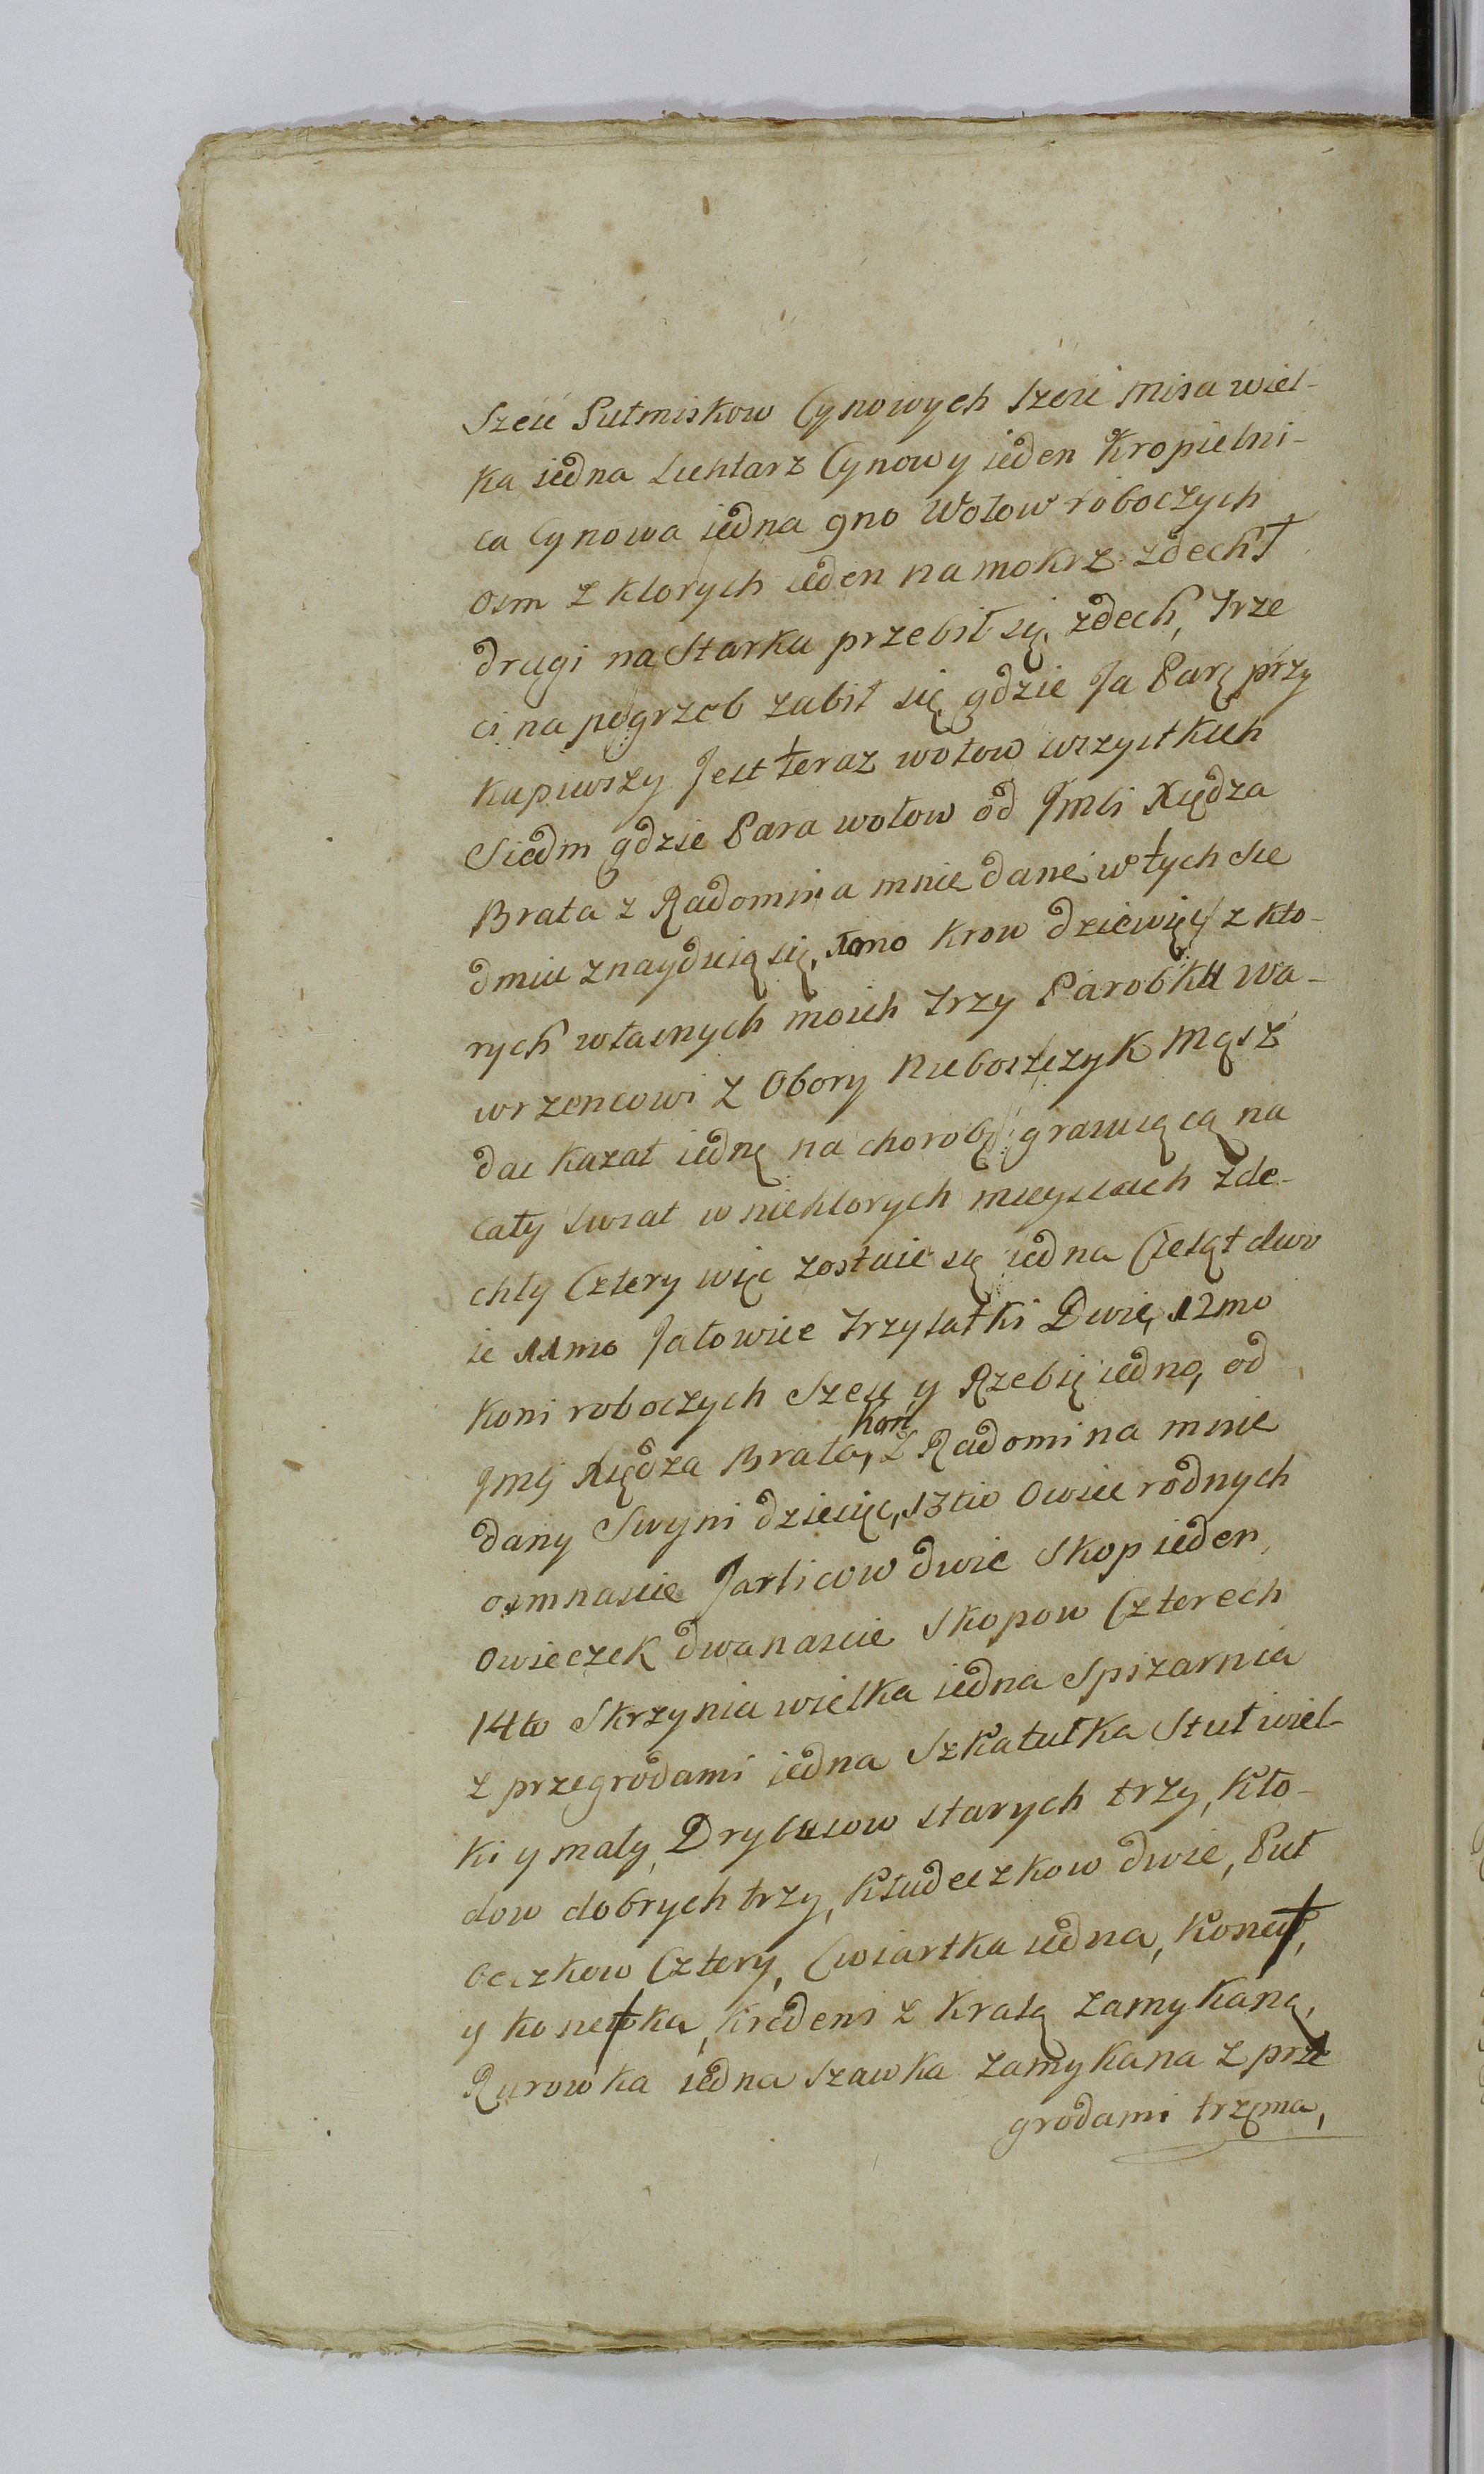 Szesć Pułmiskow Cynowych Szesć Misa wiel-
ka iedna Lichtarz Cynowy ieden Kropielni-
ca Cynowa iedna 9no Wołow roboczych
osm z ktorych ieden na mokrz zdechł
drugi na Starku przebił się zdech, Trze
ci na pogrzeb zabił się gdzie Ja Parę przy
kupiwszy Jest teraz wołow wszystkich
Siedm gdzie Para wołow od Jmći Xiędza
Brata z Radomina mnie dane w tych Sie
dmiu znayduią się, 10mo Krow dziewięć z kto-
rych własnych moich Trzy Parobku Wa-
wrzencowi z Obory Nieboszczyk Mąsz
dac kazał iednę na chorobę grasuiącą na
cały swiat w niektorych mieyscach zde-
chły Cztery więc zostaie się iedna Cieląt dwo
ie 11mo Jałowice Trzylatki Dwie, 12mo
Koni roboczych Szesć y Rzebię iedno, od
Jmći Xiędza Brata, koń z Radomina mnie
dany Swyni dziesięc, 13tio Owiec rodnych
osmnascie Jarlicow dwie Skop ieden,
Owieczek dwanascie Skopow Czterech
14to Skrzynia wielka iedna Spizarnia
z przegrodami iedna Szkatułka Stuł wiel-
ki y mały, Drybusow starych trzy, Kło-
dow dobrych trzy, Kłudeczkow dwie, Puł
beczkow Cztery, Cwiartka iedna, Konef,
y konefka, Kredens z Kratą zamykaną,
Rurowka iedna Szawka zamykana z prze
grodami trzema,